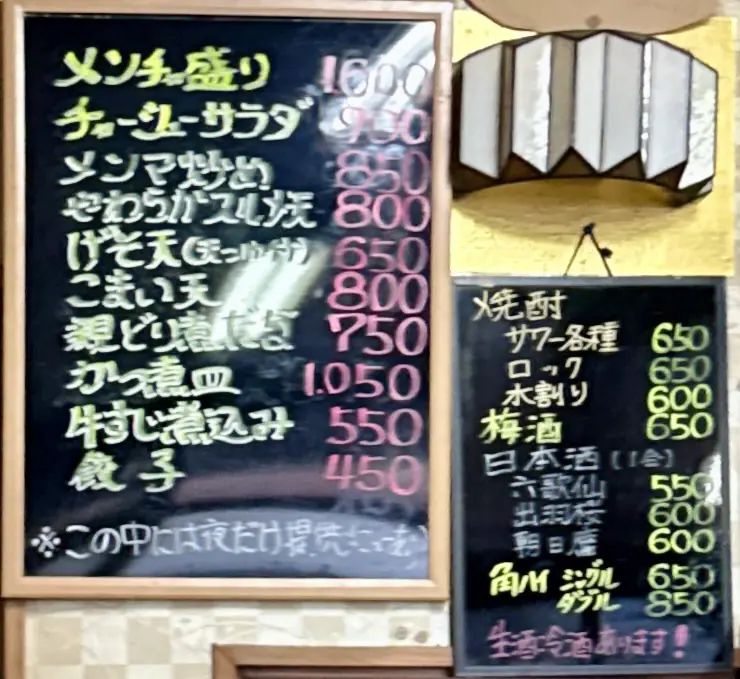 メンチャー盛り 1.600
チャーシューサラダ
メンマ炒め 850
やわらかスルメ天 800
げそ天(天つゆ付) 650
こまい天 800
親どり煮 750
かつ煮皿 1.050
牛すじ煮込み 550
餃子 450
※この中には夜だけ提供
焼酎
サワー各種 650
ロック 650
水割り 600
梅酒 650
日本酒(1合)
六歌仙 550
出羽桜 600
朝日鷹 600
角ハイ シングル 650
ダブル 850
生酒冷酒あります!